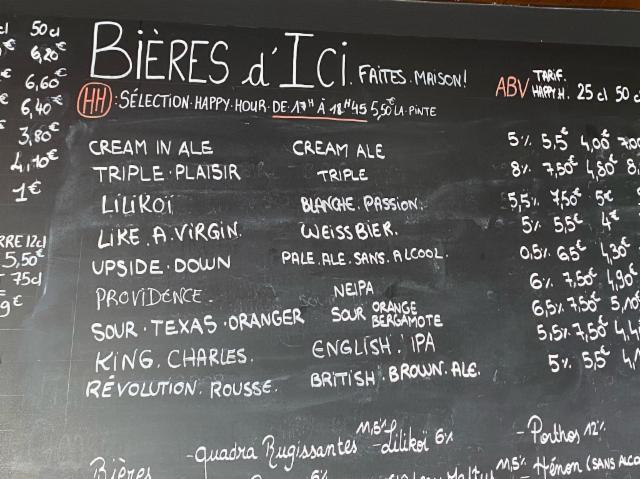 cl 50cl
€ 6,20€
€ 6,60€
€ 6,40€
3,80€
4,10€
1€
RRE 12cl
5,50€
75cl
9€
BIÈRES d'ICI. FAITES. MAISON!
HH SÉLECTION HAPPY HOUR DE 17H À 18H45 5,50€ LA PINTE
ABV TARIF. HAPPY H. 25 cl 50 c
CREAM IN ALE CREAM ALE 5% 5,5€ 4,00€ 7,00
TRIPLE PLAISIR TRIPLE 8% 7,50€ 4,80€ 8,
LILIKOÏ BLANCHE. PASSION. 5,5% 7,50€ 5€
LIKE. A. VIRGIN. WEISSBIER. 5% 5,5€ 4€
UPSIDE. DOWN PALE. ALE. SANS. ALCOOL. 0,5% 6,5€ 4,30€
PROVIDENCE. NEIPA 6% 7,50€ 4,90€
SOUR. TEXAS. ORANGER SOUR ORANGE BERGAMOTE 6,5% 7,50€ 5,10€
KING. CHARLES. ENGLISH. IPA 5,5% 7,50€ 4,4
RÉVOLUTION. ROUSSE. BRITISH. BROWN. ALE. 5% 5,5€ 4,
-quadra Rugissantes 11,5% -Lilikoï 6% -Porthos 12%
Bières 6% 11,5% -Hénon (SANS ALCO